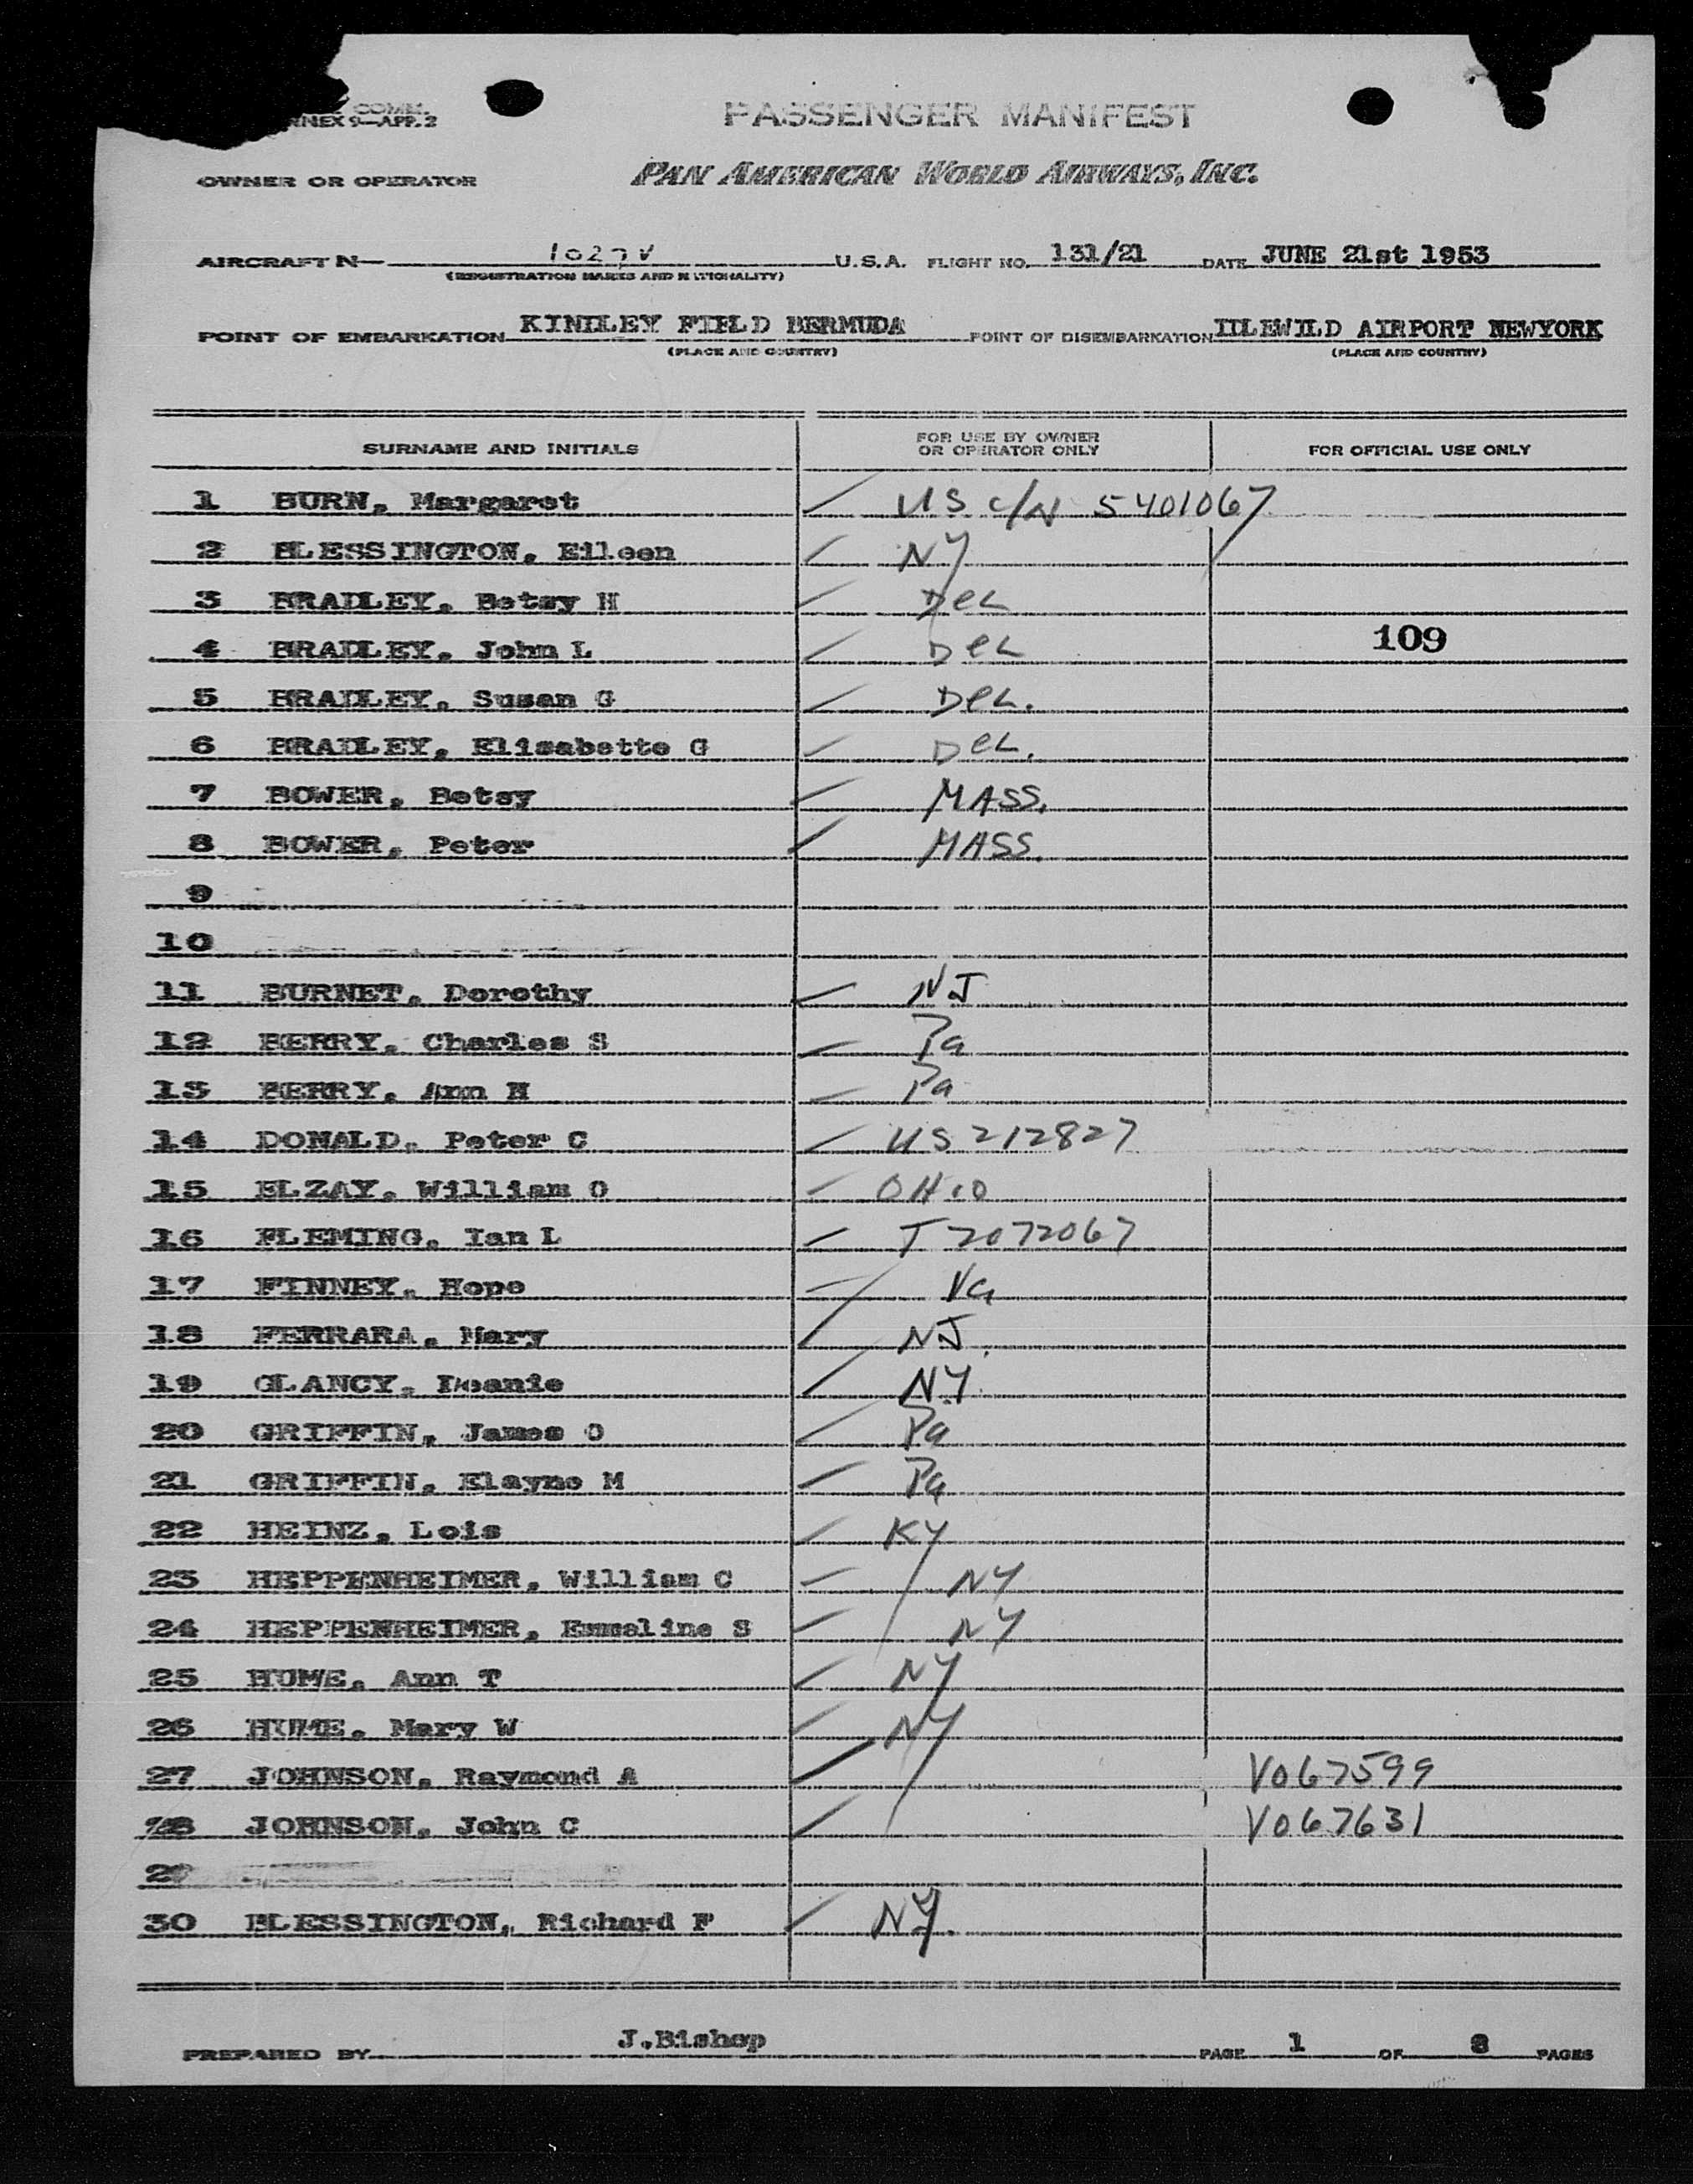 COMM.
ANNEX 9—APP. 2
PASSENGER MANIFEST
OWNER OR OPERATOR PAN AMERICAN WORLD AIRWAYS, INC.
AIRCRAFT N— U.S.A. FLIGHT NO. 131/21 DATE JUNE 21st 1953
(REGISTRATION MARKS AND NATIONALITY)
POINT OF EMBARKATION KINDLEY FIELD BERMUDA POINT OF DISEMBARKATION IDLEWILD AIRPORT NEWYORK
(PLACE AND COUNTRY) (PLACE AND COUNTRY)
SURNAME AND INITIALS FOR USE BY OWNER OR OPERATOR ONLY FOR OFFICIAL USE ONLY
1 BURN, Margaret US C/N 5401067
2 BLESSINGTON, Eileen NY
3 BRADLEY, Betsy H Del
4 BRADLEY, John L Del 109
5 BRADLEY, Susan G Del.
6 BRADLEY, Elisabette G Del.
7 BOWER, Betsy MASS.
8 BOWER, Peter MASS.
9
10
11 BURNET, Dorothy NJ
12 BERRY, Charles S Pa
13 BERRY, Ann N Pa
14 DONALD, Peter C US 212827
15 ELZAY, William O OHIO
16 FLEMING, Ian L T 2072067
17 FINNEY, Hope Va
18 FERRARA, Mary NJ.
19 GLANCY, Deanie NY.
20 GRIFFIN, James O Pa
21 GRIFFIN, Elayne M Pa
22 HEINZ, Lois KY
23 HEPPENHEIMER, William C NY
24 HEPPENHEIMER, Emmaline S NY
25 HUME, Ann T NY
26 HUME, Mary W NY
27 JOHNSON, Raymond A V067599
28 JOHNSON, John C V067631
29
30 BLESSINGTON, Richard F NY.
PREPARED BY J.Bishop PAGE 1 OF 3 PAGES